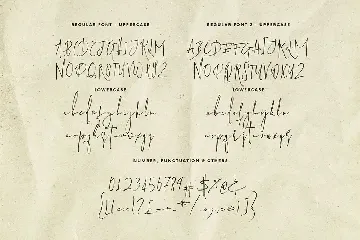 REGULAR FONT - UPPERCASE
REGULAR FONT 2 - UPPERCASE
ABCDEFGHIJKLM
ABCDEFGHIJKLM
NOPQRSTUVWXYZ
NOPQRSTUVWXYZ
LOWERCASE
LOWERCASE
abcdefghijklm
abcdefghijklm
nopqrstuvwxyz
nopqrstuvwxyz
NUMBER, PUNCTUATION & OTHERS
0123456789